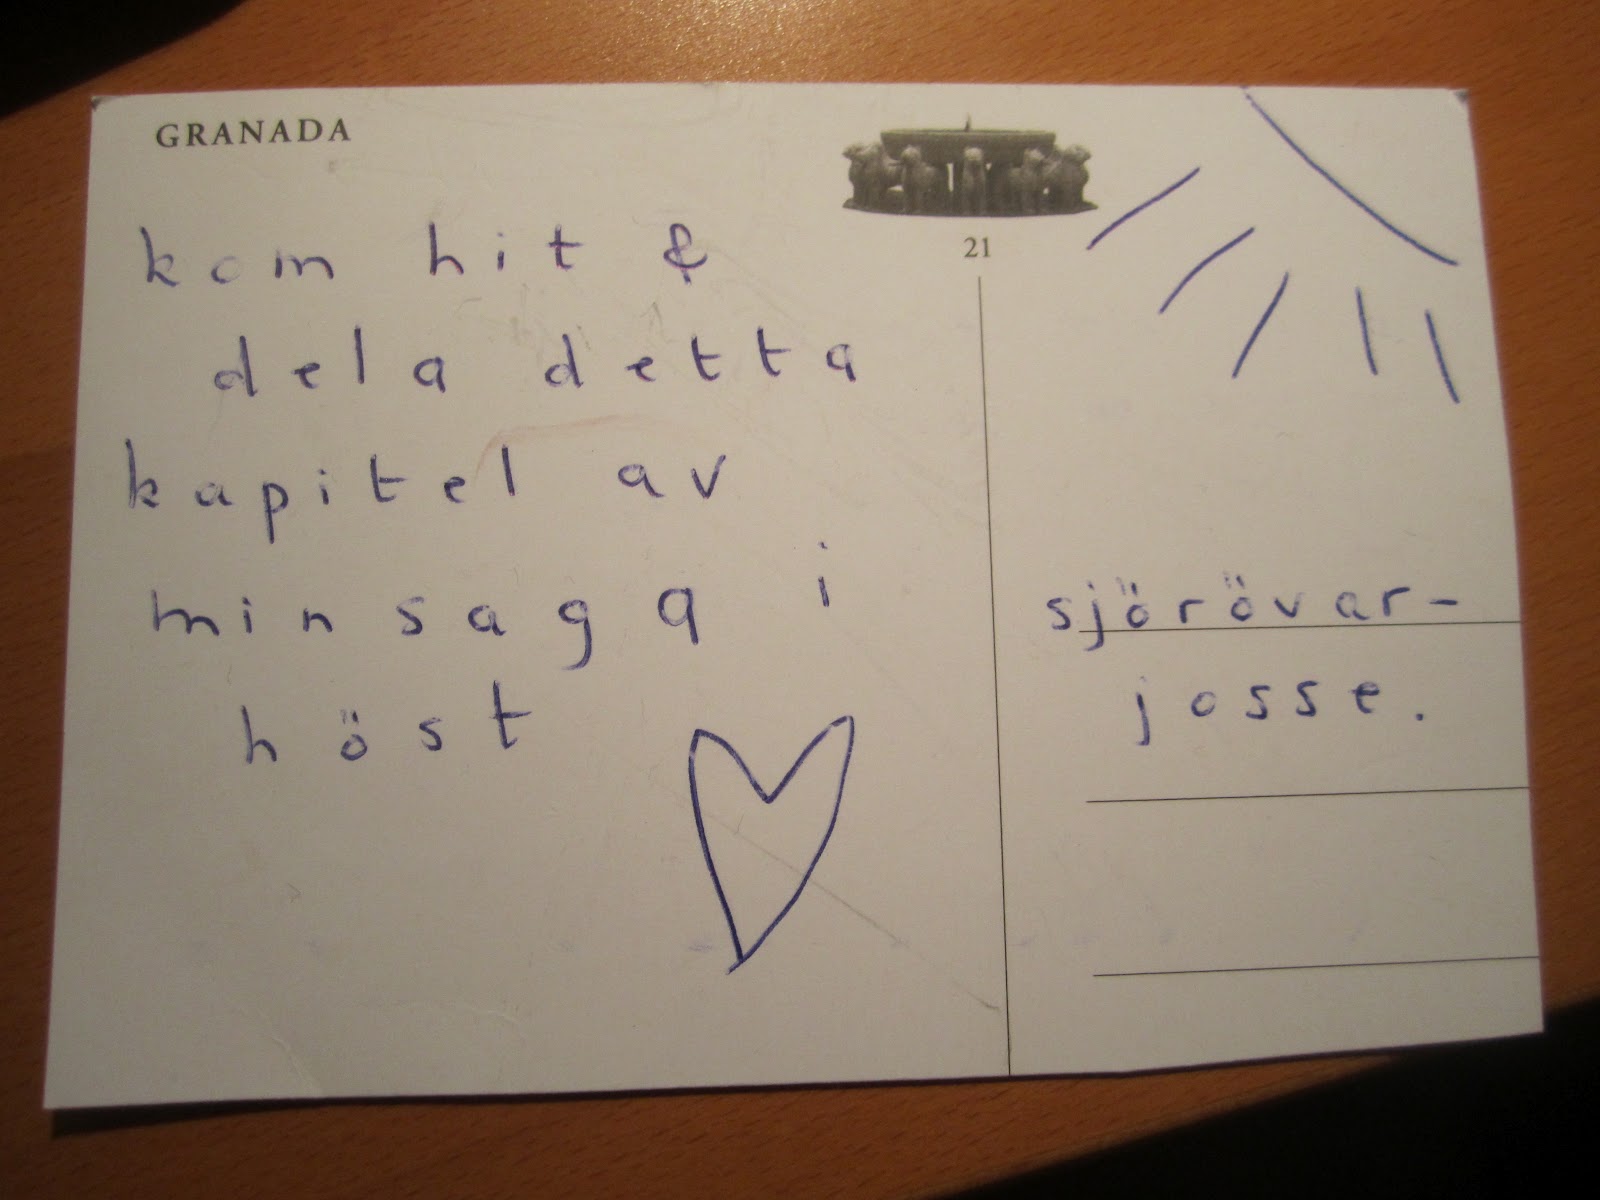 GRANADA
21
kom hit &
dela detta
kapitel av
min saga i
höst
sjörövar-
josse.